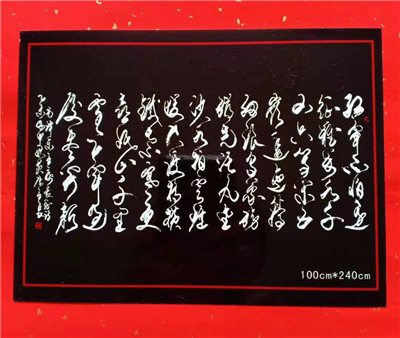 红军不怕远
征难万水千
山只等闲五
岭逶迤腾
细浪乌蒙磅
礴走泥丸金
沙水拍云崖
暖大渡桥横
铁索寒更
喜岷山千里
雪三军过
后尽开颜
100cm*240cm